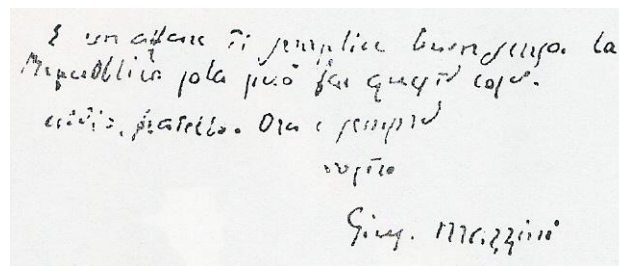 È un affare di semplice buon senso. La
Repubblica sola può far queste cose.
addio, fratello. Ora e sempre
vostro
Gius. Mazzini